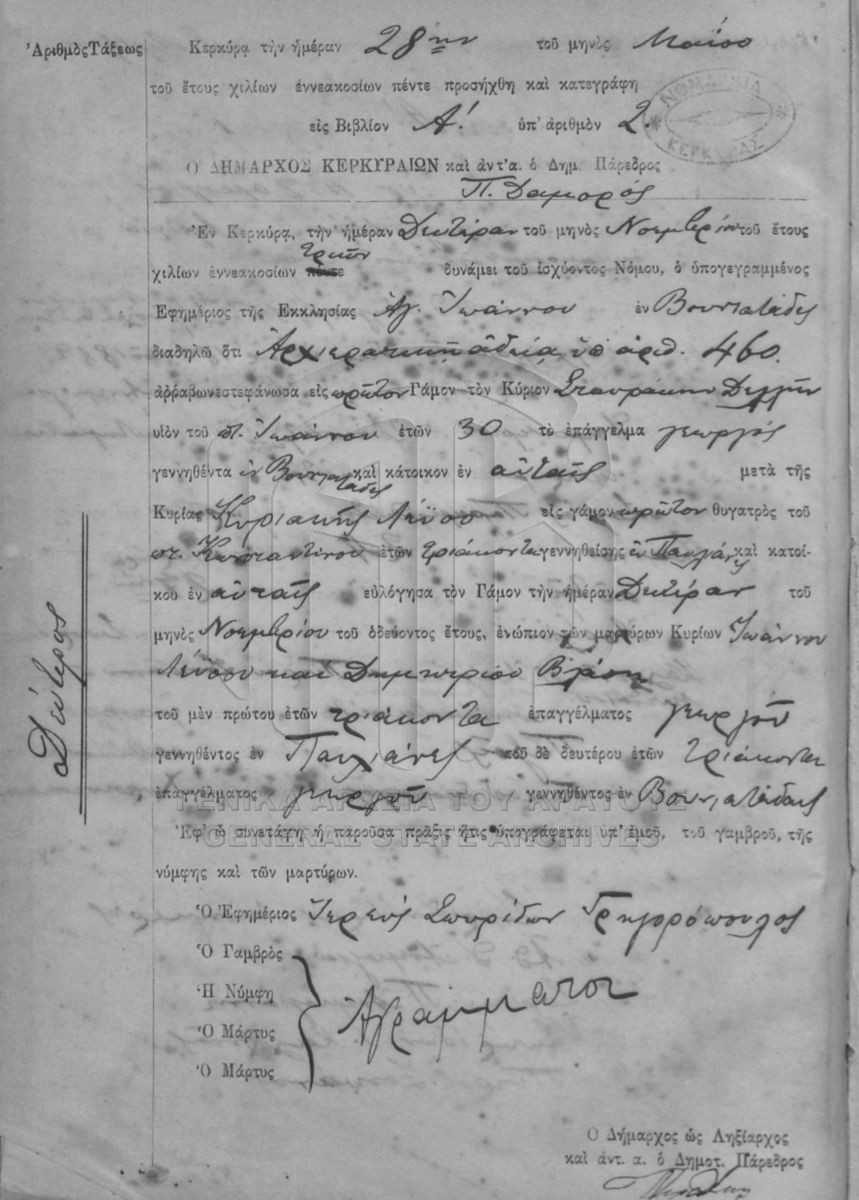 Ἀριθμὸς Τάξεως
Κερκύρα τὴν ἡμέραν 28ην τοῦ μηνὸς Μαΐου
τοῦ ἔτους χιλίων ἐννεακοσίων πέντε προσήχθη καὶ κατεγράφη
εἰς Βιβλίον Α! ὑπ' ἀριθμὸν 2.
ΝΟΜΑΡΧΙΑ ΚΕΡΚΥΡΑΣ
Ο ΔΗΜΑΡΧΟΣ ΚΕΡΚΥΡΑΙΩΝ καὶ ἀντ'α. ὁ Δημ. Πάρεδρος
Π.
Ἐν Κερκύρᾳ, τὴν ἡμέραν Δευτέραν τοῦ μηνὸς Νοεμβρίου τοῦ ἔτους
χιλίων ἐννεακοσίων πέντε δυνάμει τοῦ ἰσχύοντος Νόμου, ὁ ὑπογεγραμμένος
Ἐφημέριος τῆς Ἐκκλησίας Ἁγ. Ἰωάννου ἐν
διαδηλῶ ὅτι Ἀρχιερατικῇ ἀδείᾳ ὑπ ἀριθ. 460.
ἀῤῥαβωνεστεφάνωσα εἰς πρῶτον Γάμον τὸν Κύριον Σταυράκην
υἱὸν τοῦ π. Ἰωάννου ἐτῶν 30 τὸ ἐπάγγελμα γεωργὸς
γεννηθέντα ἐν καὶ κάτοικον ἐν αὐταῖς μετὰ τῆς
Κυρίας Κυριακῆς εἰς γάμον πρῶτον θυγατρὸς τοῦ
π. Κωσταντίνου ἐτῶν τριάκοντα γεννηθείσης ἐν καὶ κατοί-
κου ἐν αὐταῖς εὐλόγησα τὸν Γάμον τὴν ἡμέραν Δευτέραν τοῦ
μηνὸς Νοεμβρίου τοῦ ὁδεύοντος ἔτους, ἐνώπιον τῶν μαρτύρων Κυρίων Ἰωάννου
καὶ Δημητρίου
τοῦ μὲν πρώτου ἐτῶν τριάκοντα ἐπαγγέλματος γεωργοῦ
γεννηθέντος ἐν τοῦ δὲ δευτέρου ἐτῶν τριάκοντα
ἐπαγγέλματος γεωργοῦ γεννηθέντος ἐν
ΓΕΝΙΚΑ ΑΡΧΕΙΑ ΤΟΥ ΚΡΑΤΟΥΣ
Ἐφ' ᾧ συνετάγη ἡ παροῦσα πρᾶξις ἥτις ὑπογράφεται ὑπ' ἐμοῦ, τοῦ γαμβροῦ, τῆς
GENERAL STATE ARCHIVES
νύμφης καὶ τῶν μαρτύρων.
Ὁ Ἐφημέριος Ἱερεὺς Σπυρίδων Γρηγορόπουλος
Ὁ Γαμβρὸς
Ἡ Νύμφη
Ἀγράμματοι
Ὁ Μάρτυς
Ὁ Μάρτυς
Δεύτερος
Ὁ Δήμαρχος ὡς Ληξίαρχος
καὶ ἀντ. α. ὁ Δημοτ. Πάρεδρος